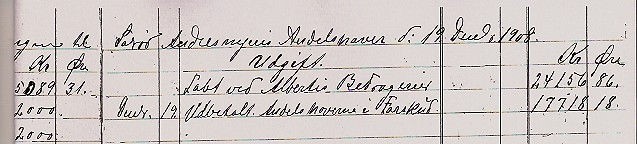 til Sorø Andelsmejeris Andelshaver d: 19 Decbr 1908.
Kr Øre Udgift. Kr Øre
5089 31. Tabt ved Albertis Bedragerier 24156 86.
2000. Decbr. 19 Udbetalt Andelshaverne i Forskud 17718 18.
2000.